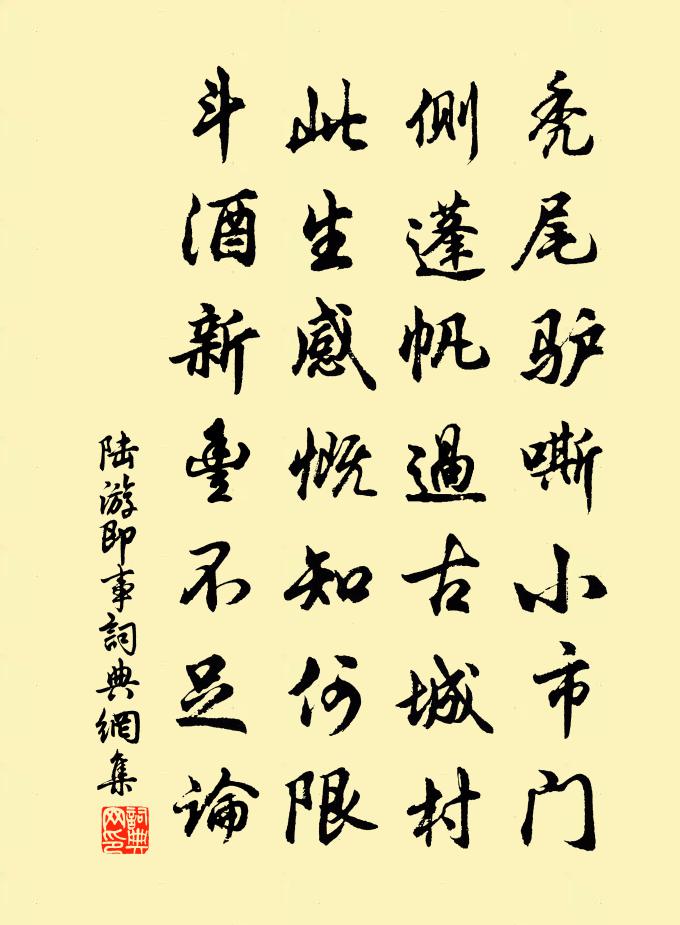 秃尾驴嘶小市门
侧蓬帆過古城村
此生感慨知何限
斗酒新豊不足论
陆游即事詞典網集
詞典
网印